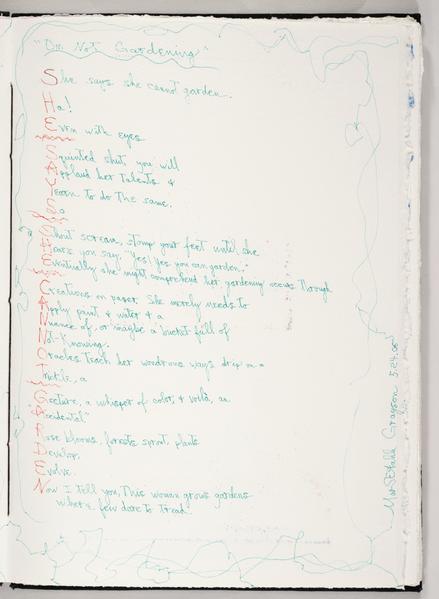 "On Not Gardening"
She says she cannot garden.
Ha!
Even with eyes
Squinted shut, you will
Applaud her talents &
Yearn to do the same.
So
Shout scream, stomp your feet until she
Hears you say, "Yes! Yes you can garden."
Eventually she might comprehend her gardening occurs through
Creations on paper. She merely needs to
Apply paint & water & a
Nuance of, or maybe a bucket full of
Not-Knowing.
Oracles teach her wondrous ways drip a
Trickle, a
Gesture, a whisper of color, & voila, an
Accidental"
Rose blooms, forests sprout, plants
Develop,
Evolve.
Now I tell you, This woman grows gardens
Where few dare to tread.
Grayson 5.24.05